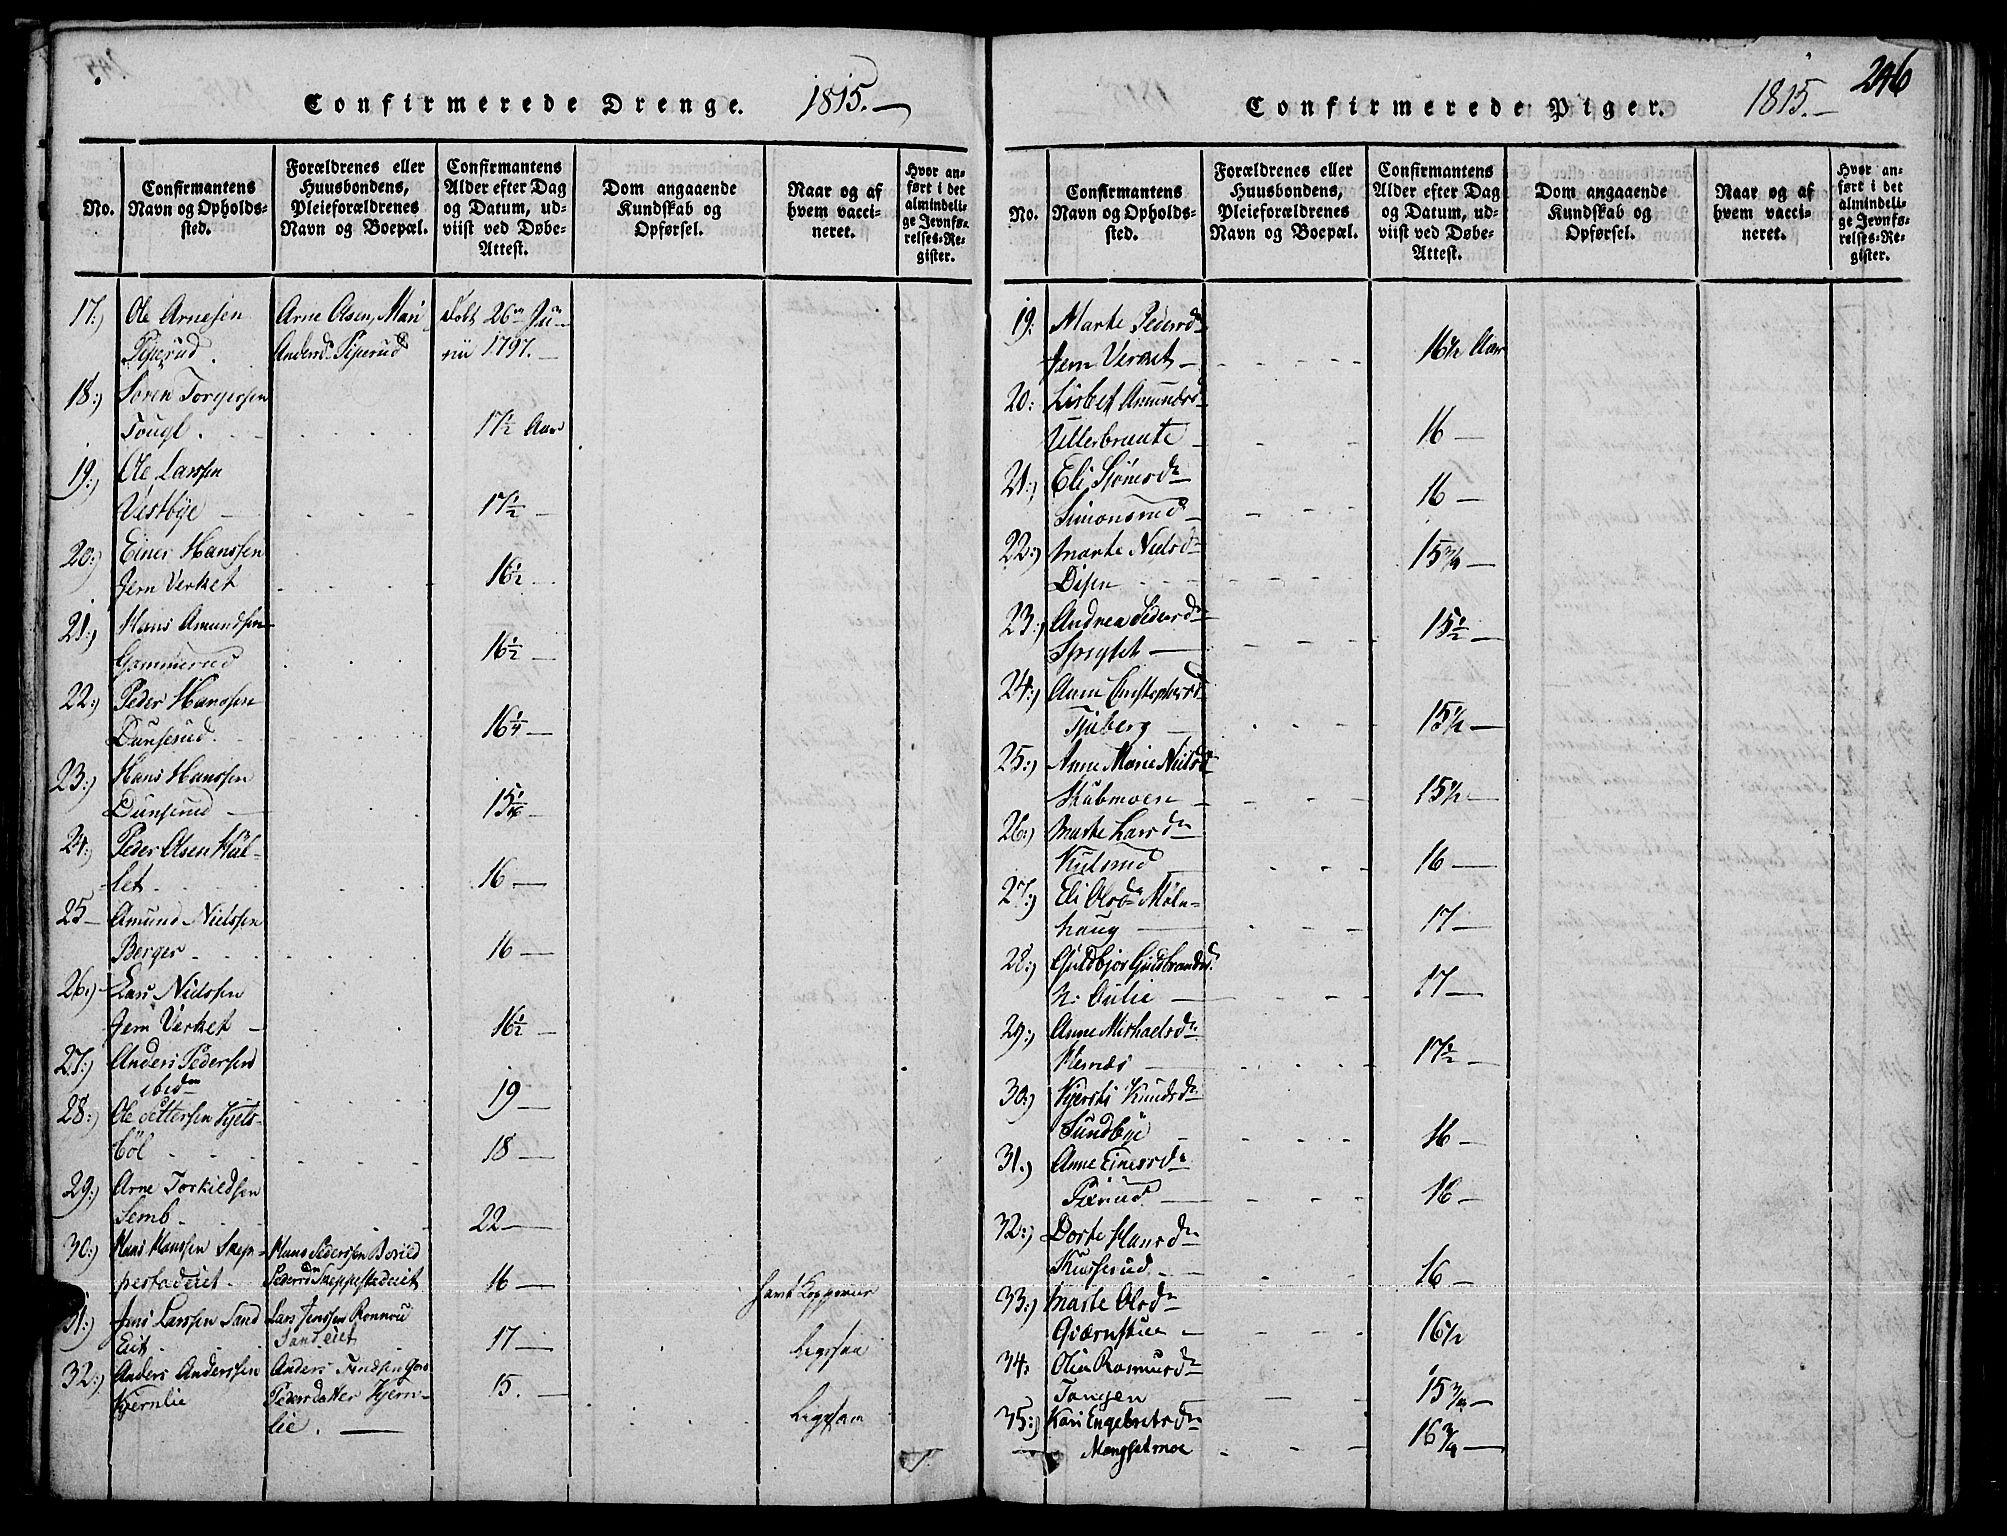 Confirmerede Drenge. 1815.
No.
Confirmantens Navn og Opholds-sted.
Forældrenes eller Huusbondens, Pleieforældrenes Navn og Boepæl.
Confirmantens Alder efter Dag og Datum, ud-viist ved Døbe-Attest.
Dom angaaende Kundskab og Opførsel.
Naar og af hvem vacci-neret.
Hvor an-ført i det almindeli-ge Jevnfø-relses-Re-gister.
17.) Ole Arnesen Arne Olsen, Mari Født 26de Ju-
Piperud. Andersd. Piperud nii 1797.
18.) Søren Torgersen
Tougl. 17½ Aar
19.) Ole Larssen
Vestbye 17½
20.) Einer Hanssen
Jern Verket 16½
21.) Hans Amundsen
Gammerud 16½
22.) Peder Hanssen
Dunserud. 16¼
23.) Hans Hanssen
Dunserud
24.) Peder Olsen
let. 16
25 Amund Nielssen
Berger 16
26.) Lars Nielssen
Jern Verket 16½
27.) Anders Pederssen
ibidm 19
28.) Ole Pettersen Kjels-
böl 18
29.) Arne Torkildsen
Semb 22
30.) Hans Hanssen Skep- Hans Pederssen Borild
pestadeiet. Pedersdn Skeppestadeiet 16 havt Kopperne
31.) Jens Larssen Sand Lars Jenssen Ronnou
Eiet. Sandeiet 17 Ligesaa
32.) Anders Anderssen Anders
Kjernlie Pedersdatter Kjern- 15. Ligesaa
lie.
Confirmerede Piger. 1815. 246
No.
Confirmantens Navn og Opholds-sted.
Forældrenes eller Huusbondens, Pleieforældrenes Navn og Boepæl.
Confirmantens Alder efter Dag og Datum, ud-viist ved Døbe-Attest.
Dom angaaende Kundskab og Opførsel.
Naar og af hvem vacci-neret.
Hvor an-ført i det almindeli-ge Jevnfø-relses-Re-gister.
19: Marte Pedersdr
Jern Verket 16½ Aar
20: Lisbet Amundsd
Ullerbraate 16
21.) Eli
Simonsrud 16
22.) Marte Nielsdr
Disen 15¾
23.) Andrea Pedersdr
Spigset 15½
24.) Anne Christophersd
Tjuberg 15½
25.) Anne Marie Nielsd
Skubmoen 15½
26.) Marte Larsdr
16
27.) Eli Olsdr Møln-
haug 17
28.) Guldbjør Guldbrandsd.
n: Aulie 17
29.) Anne Michaelsdr
Hemnæs 17½
30.) Kjersti Knudsdr
Sundbye 16
31.) Anne Einersdr
16
32.) Dorte Hansdr
Kusserud 16
33.) Marte Olsdr
Qværnstue 16½
34. Olia Rasmusdr
Tangen 15¾
35.) Kari Engebretsdr
Mangsetmoe 16¾